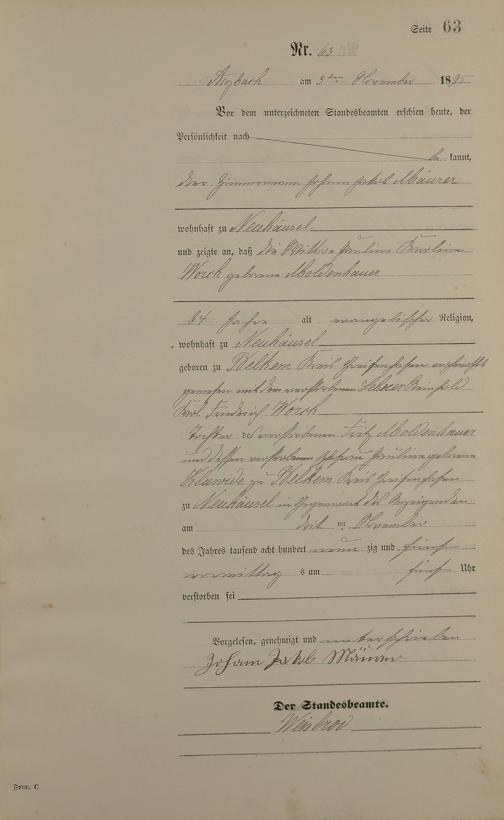 Seite 63
Nr. 63
Arzbach am 3ten November 1895
Vor dem unterzeichneten Standesbeamten erschien heute, der
Persönlichkeit nach
be kannt,
der Zimmermann Johann Jakob Mäurer
wohnhaft zu Neuhäusel
und zeigte an, daß die Wittwe Pauline Karoline
Worch geborene Moldenhauer
64 Jahre alt evangelischer Religion,
wohnhaft zu Neuhäusel
geboren zu Kreis Greifenhagen verehelicht
gewesen mit dem verstorbenen Lehrer Reinhold
Karl Friedrich Worch
Tochter des verstorbenen Fritz Moldenhauer
und dessen verstorbenen Ehefrau Pauline geborene
zu Kreis Greifenhagen
zu Neuhäusel in Gegenwart des Anzeigenden
am November
des Jahres tausend acht hundert neun zig und fünf
vormittag s um fünf Uhr
verstorben sei
Vorgelesen, genehmigt und unterschrieben
Johann Jakob Mäurer
Der Standesbeamte.
Weinbrod
Form. C.